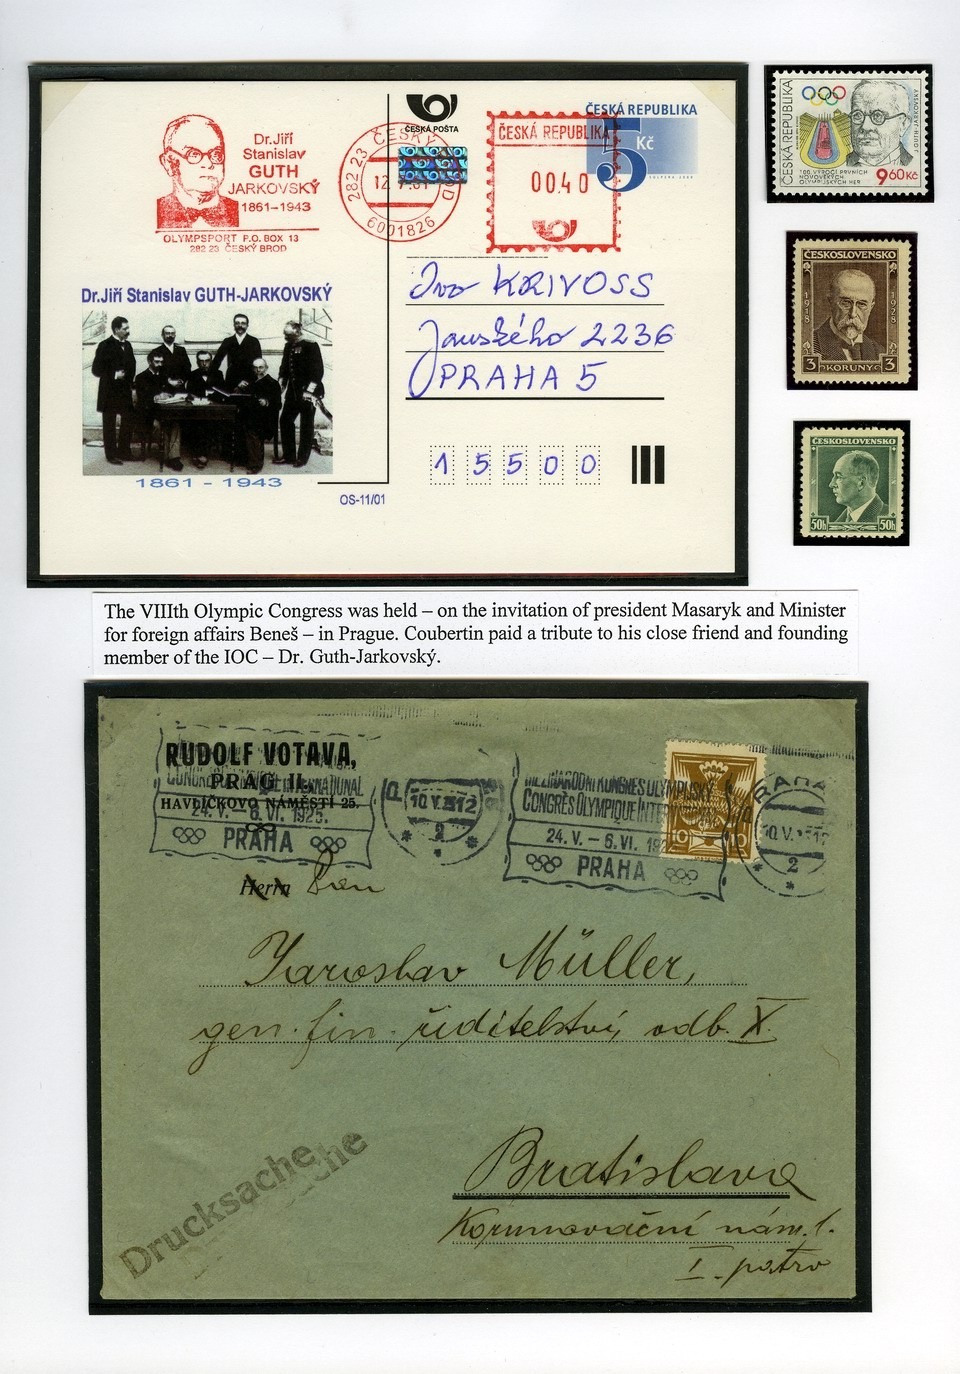 Dr.Jiří
Stanislav
GUTH
JARKOVSKÝ
1861-1943
OLYMPSPORT P.O. BOX 13
282 23 ČESKÝ BROD
ČESKÁ POSTA
282 23 ČESKÝ
12.7.01
6001826
ČESKÁ REPUBLIKA
00.40
ČESKÁ REPUBLIKA
5 Kč
Dr.Jiří Stanislav GUTH-JARKOVSKÝ
1861 - 1943
OS-11/01
Ivo KRIVOSS
Janského 2236
PRAHA 5
15500
ČESKÁ REPUBLIKA
J.GUTH-JARKOVSKÝ
100. VÝROČÍ PRVNÍCH
NOVOVĚKÝCH
OLYMPIJSKÝCH HER
9.60 Kč
ČESKOSLOVENSKO
1918 1928
3 KORUNY 3
ČESKOSLOVENSKO
50h 50h
The VIIIth Olympic Congress was held – on the invitation of president Masaryk and Minister
for foreign affairs Beneš – in Prague. Coubertin paid a tribute to his close friend and founding
member of the IOC – Dr. Guth-Jarkovský.
RUDOLF VOTAVA,
PRAG II.,
HAVLÍČKOVO NÁMĚSTÍ 25.
24. V. – 6. VI. 1925.
PRAHA
10 V 12
2
MEZINÁRODNÍ KONGRES OLYMPIJSKÝ
CONGRÈS OLYMPIQUE INTER
24. V. – 6. VI. 192
PRAHA
10 10
PRAHA
10.V.
2
Herrn
Jaroslav Müller,
gen. fin. ředitelství, odb. X.
Bratislava
Korunovační nám. 1.
I. patro
Drucksache